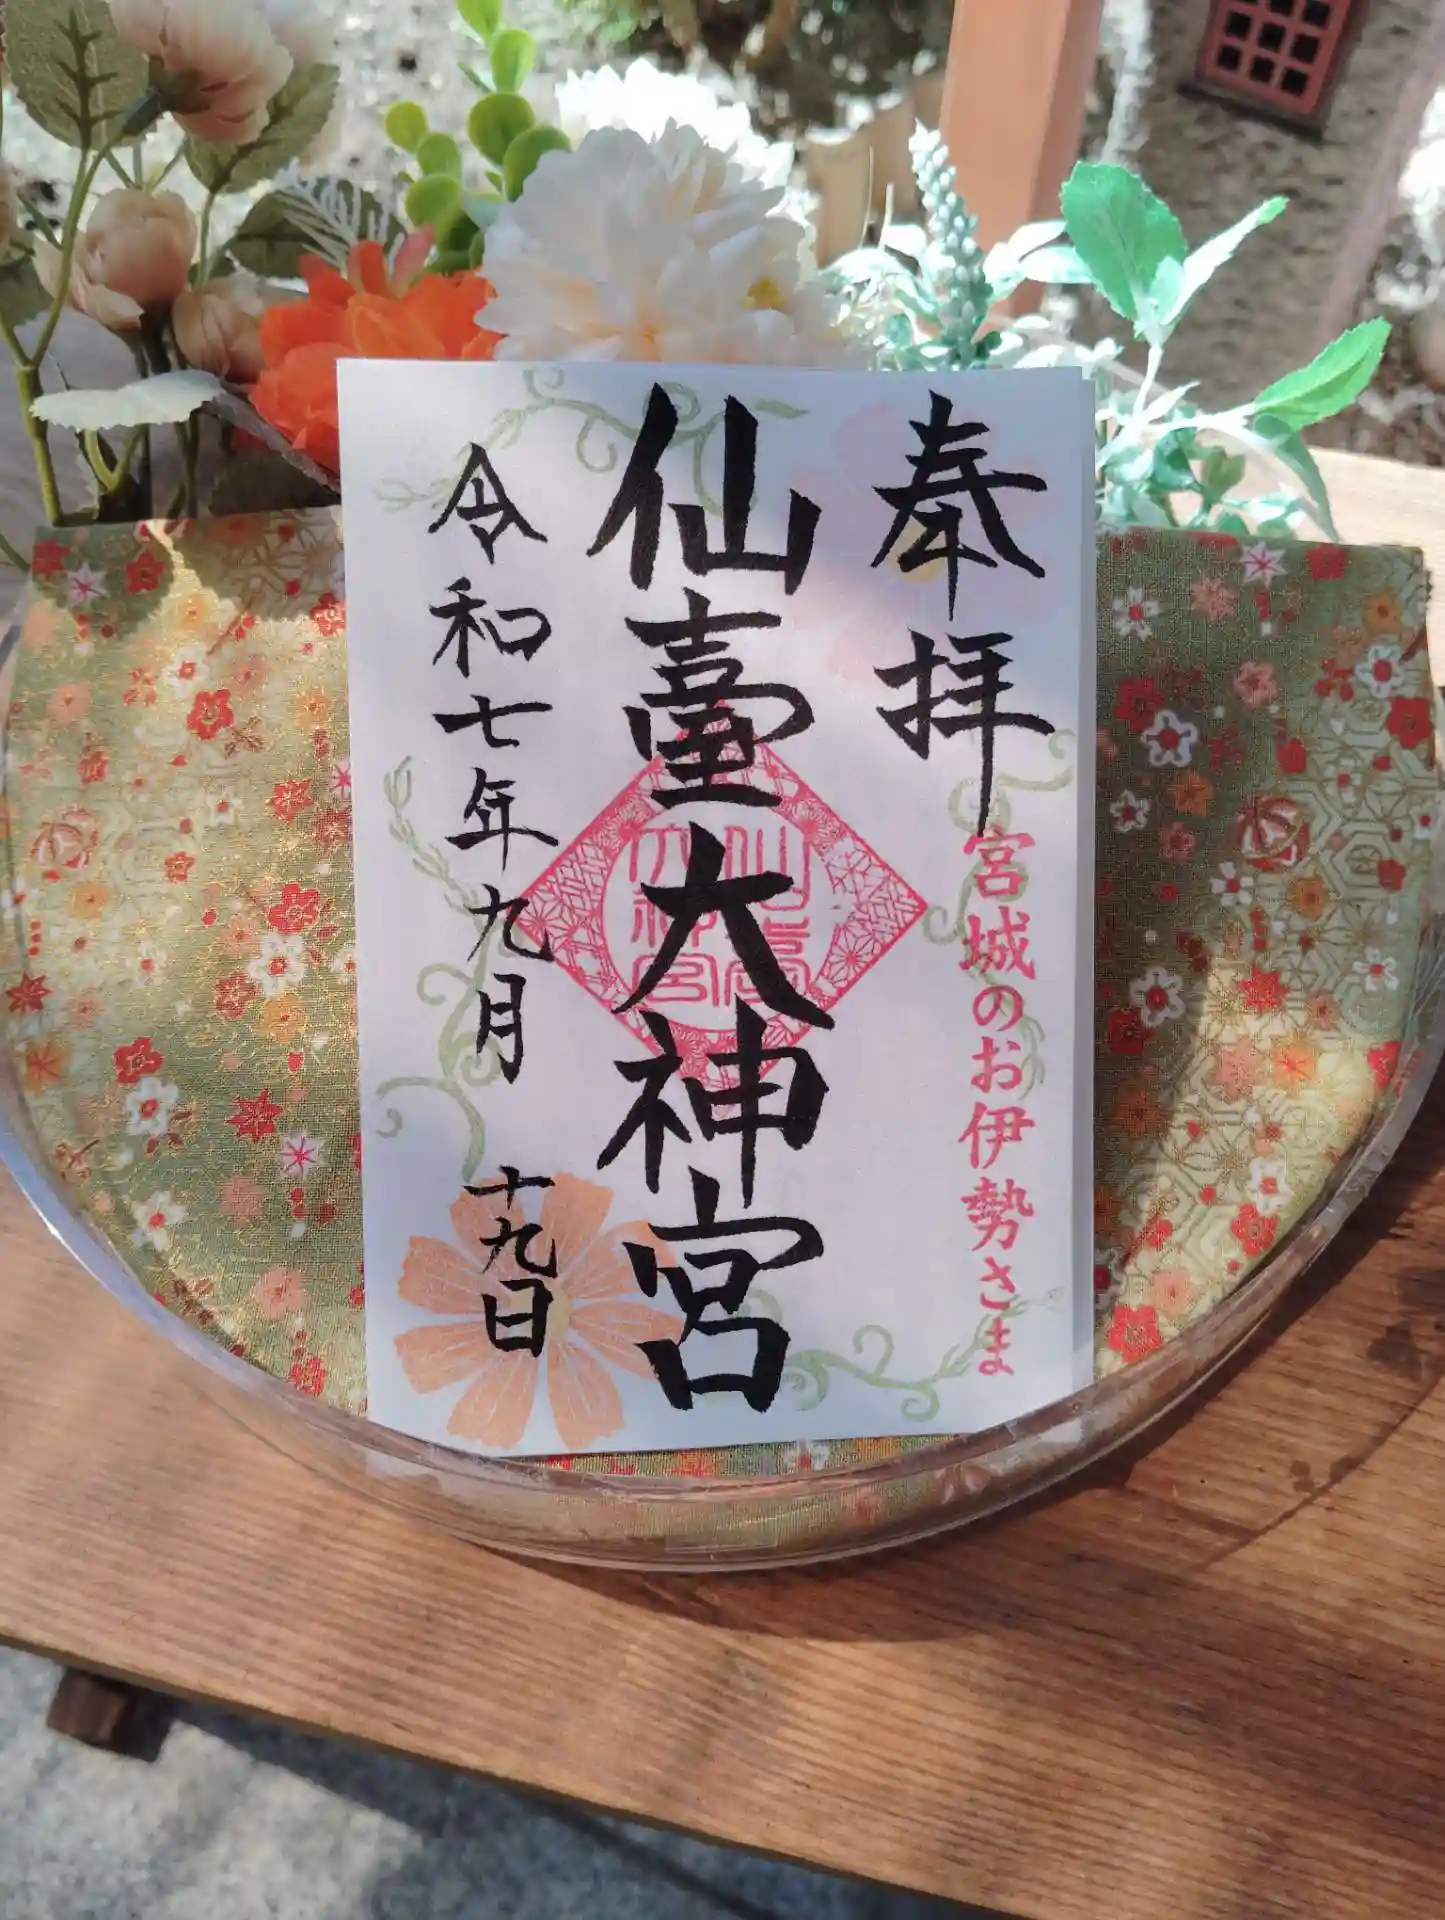 奉拝
宮城のお伊勢さま
仙臺大神宮
仙臺
大神宮
令和七年九月
十九日